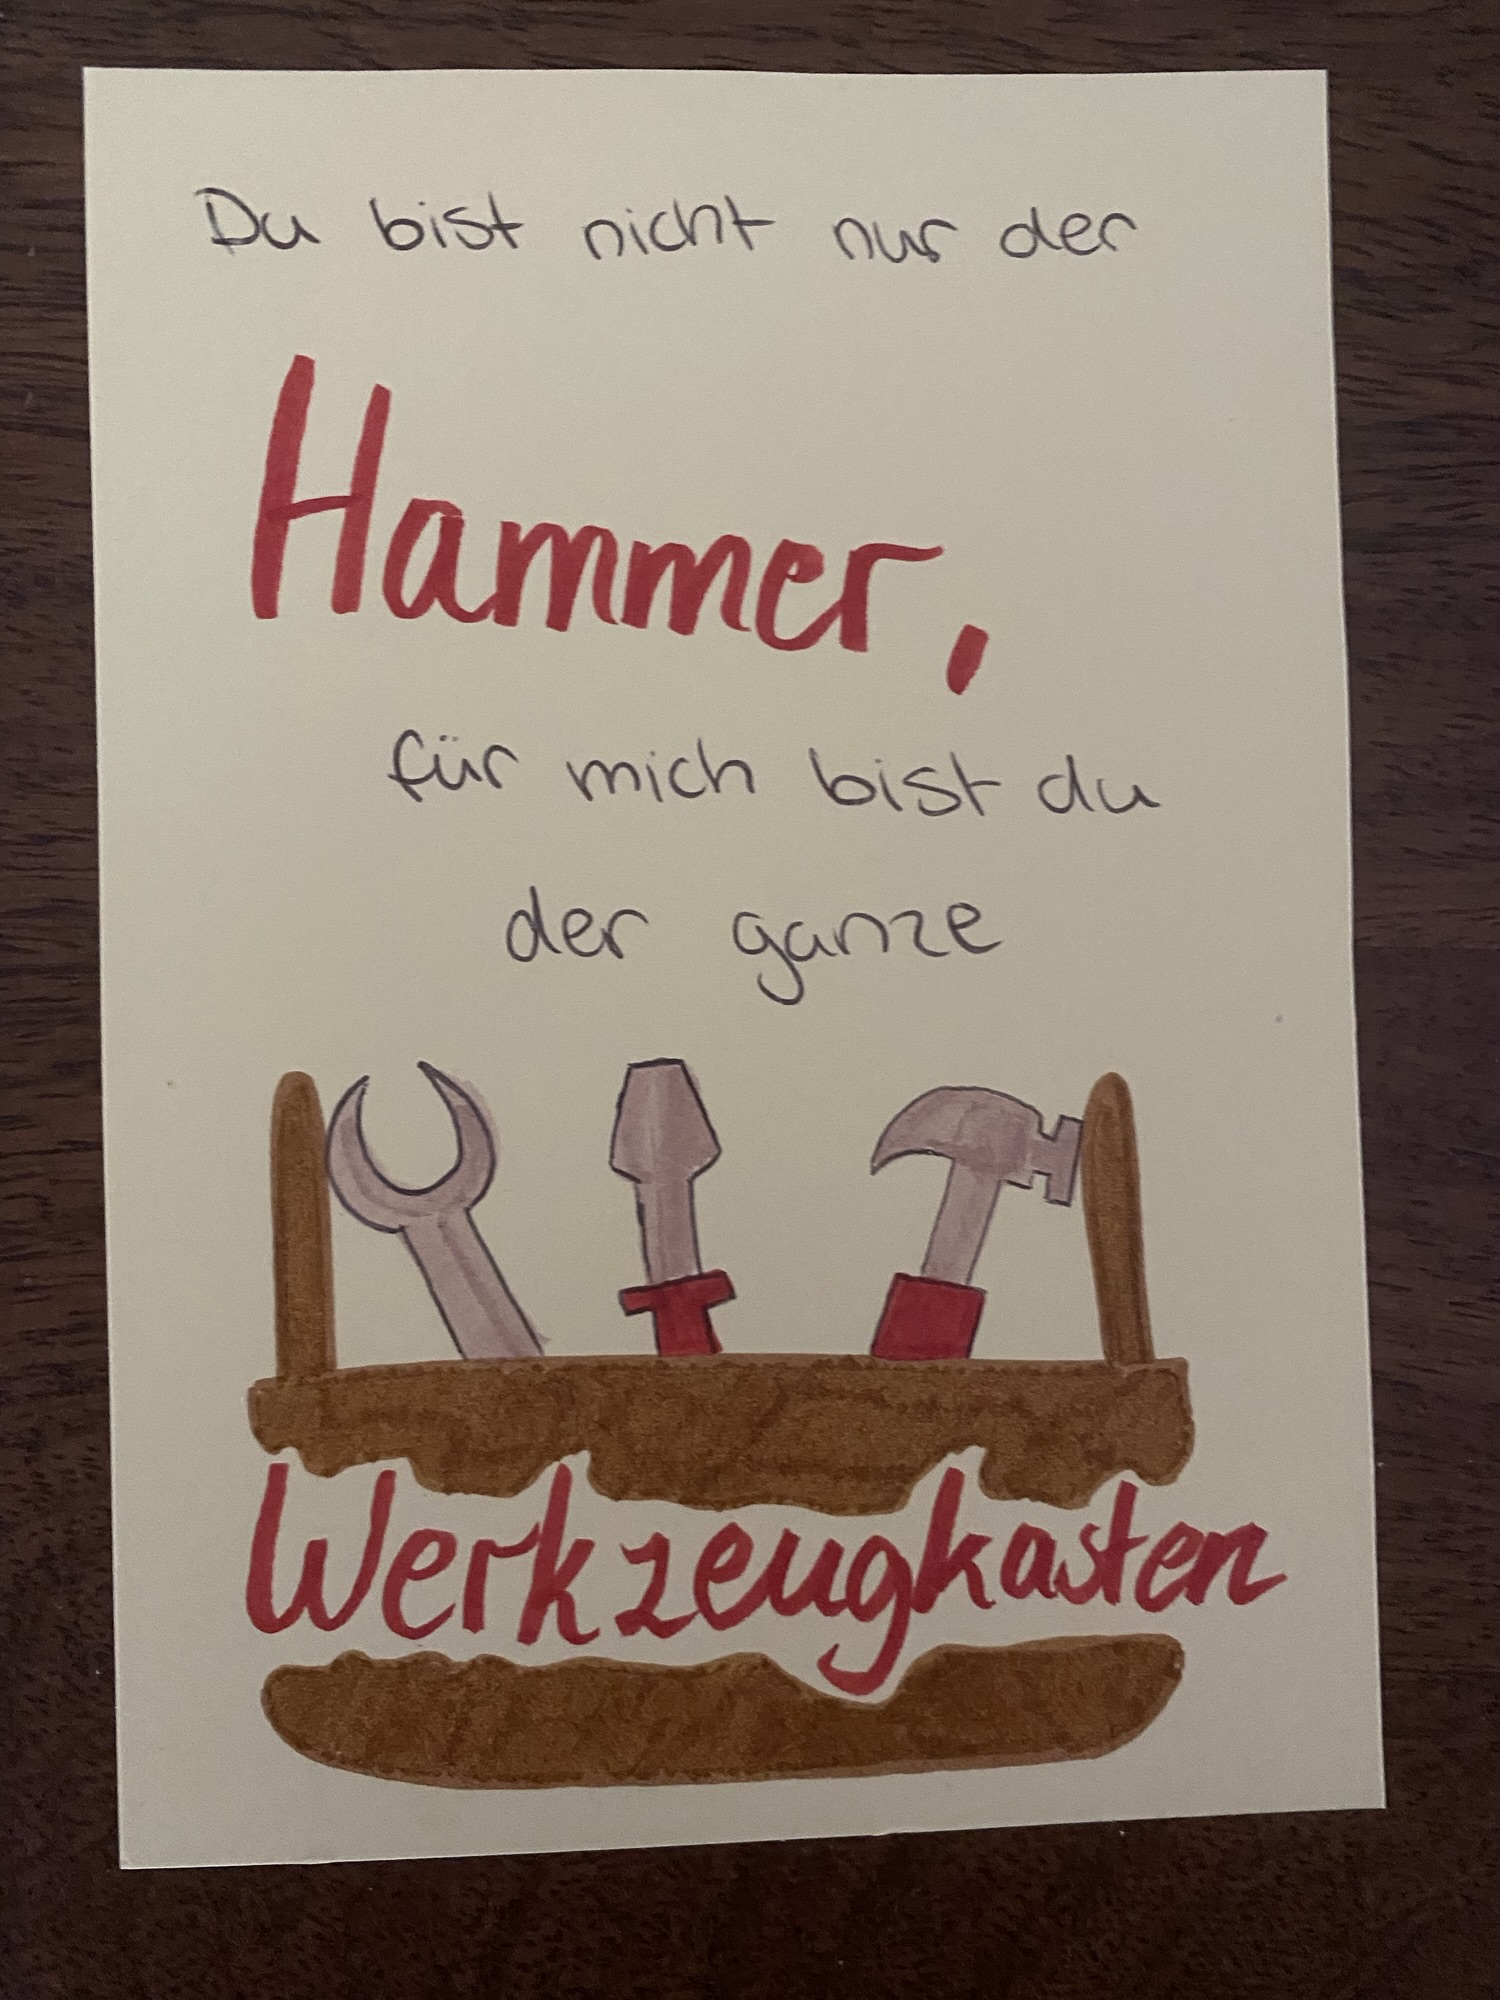 Du bist nicht nur der
Hammer,
für mich bist du
der ganze
Werkzeugkasten